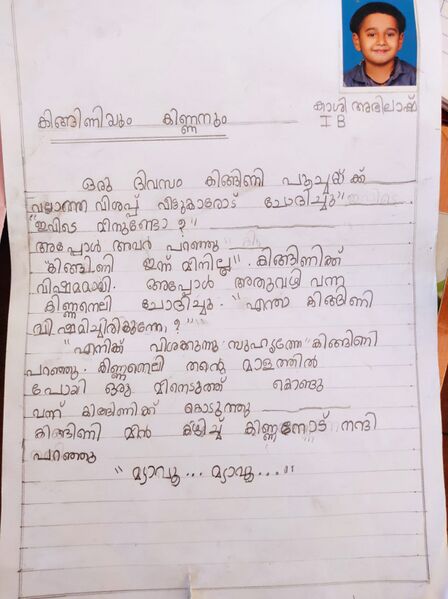 കാശി അഭിലാഷ്
I B
കിങ്ങിണിയും കിണ്ണനും
ഒരു ദിവസം കിങ്ങിണി പൂച്ചയ്ക്ക്
വല്ലാത്ത വിശപ്പ് വീട്ടുകാരോട് ചോദിച്ചു
"ഇവിടെ മീനുണ്ടോ?"
അപ്പോൾ അവർ പറഞ്ഞു
"കിങ്ങിണി ഇന്ന് മീനില്ല". കിങ്ങിണിക്ക്
വിഷമമായി. അപ്പോൾ അതുവഴി വന്ന
കിണ്ണനെലി ചോദിച്ചു. "എന്താ കിങ്ങിണി
വിഷമിച്ചിരിക്കുന്നേ,?"
"എനിക്ക് വിശക്കുന്നു സുഹൃത്തേ" കിങ്ങിണി
പറഞ്ഞു. കിണ്ണനെലി തന്റെ മാളത്തിൽ
പോയി ഒരു മീനെടുത്ത് കൊണ്ടു
വന്ന് കിങ്ങിണിക്ക് കൊടുത്തു
കിങ്ങിണി മീൻ കഴിച്ച് കിണ്ണനോട് നന്ദി
പറഞ്ഞു
"മ്യാവൂ... മ്യാവൂ..."